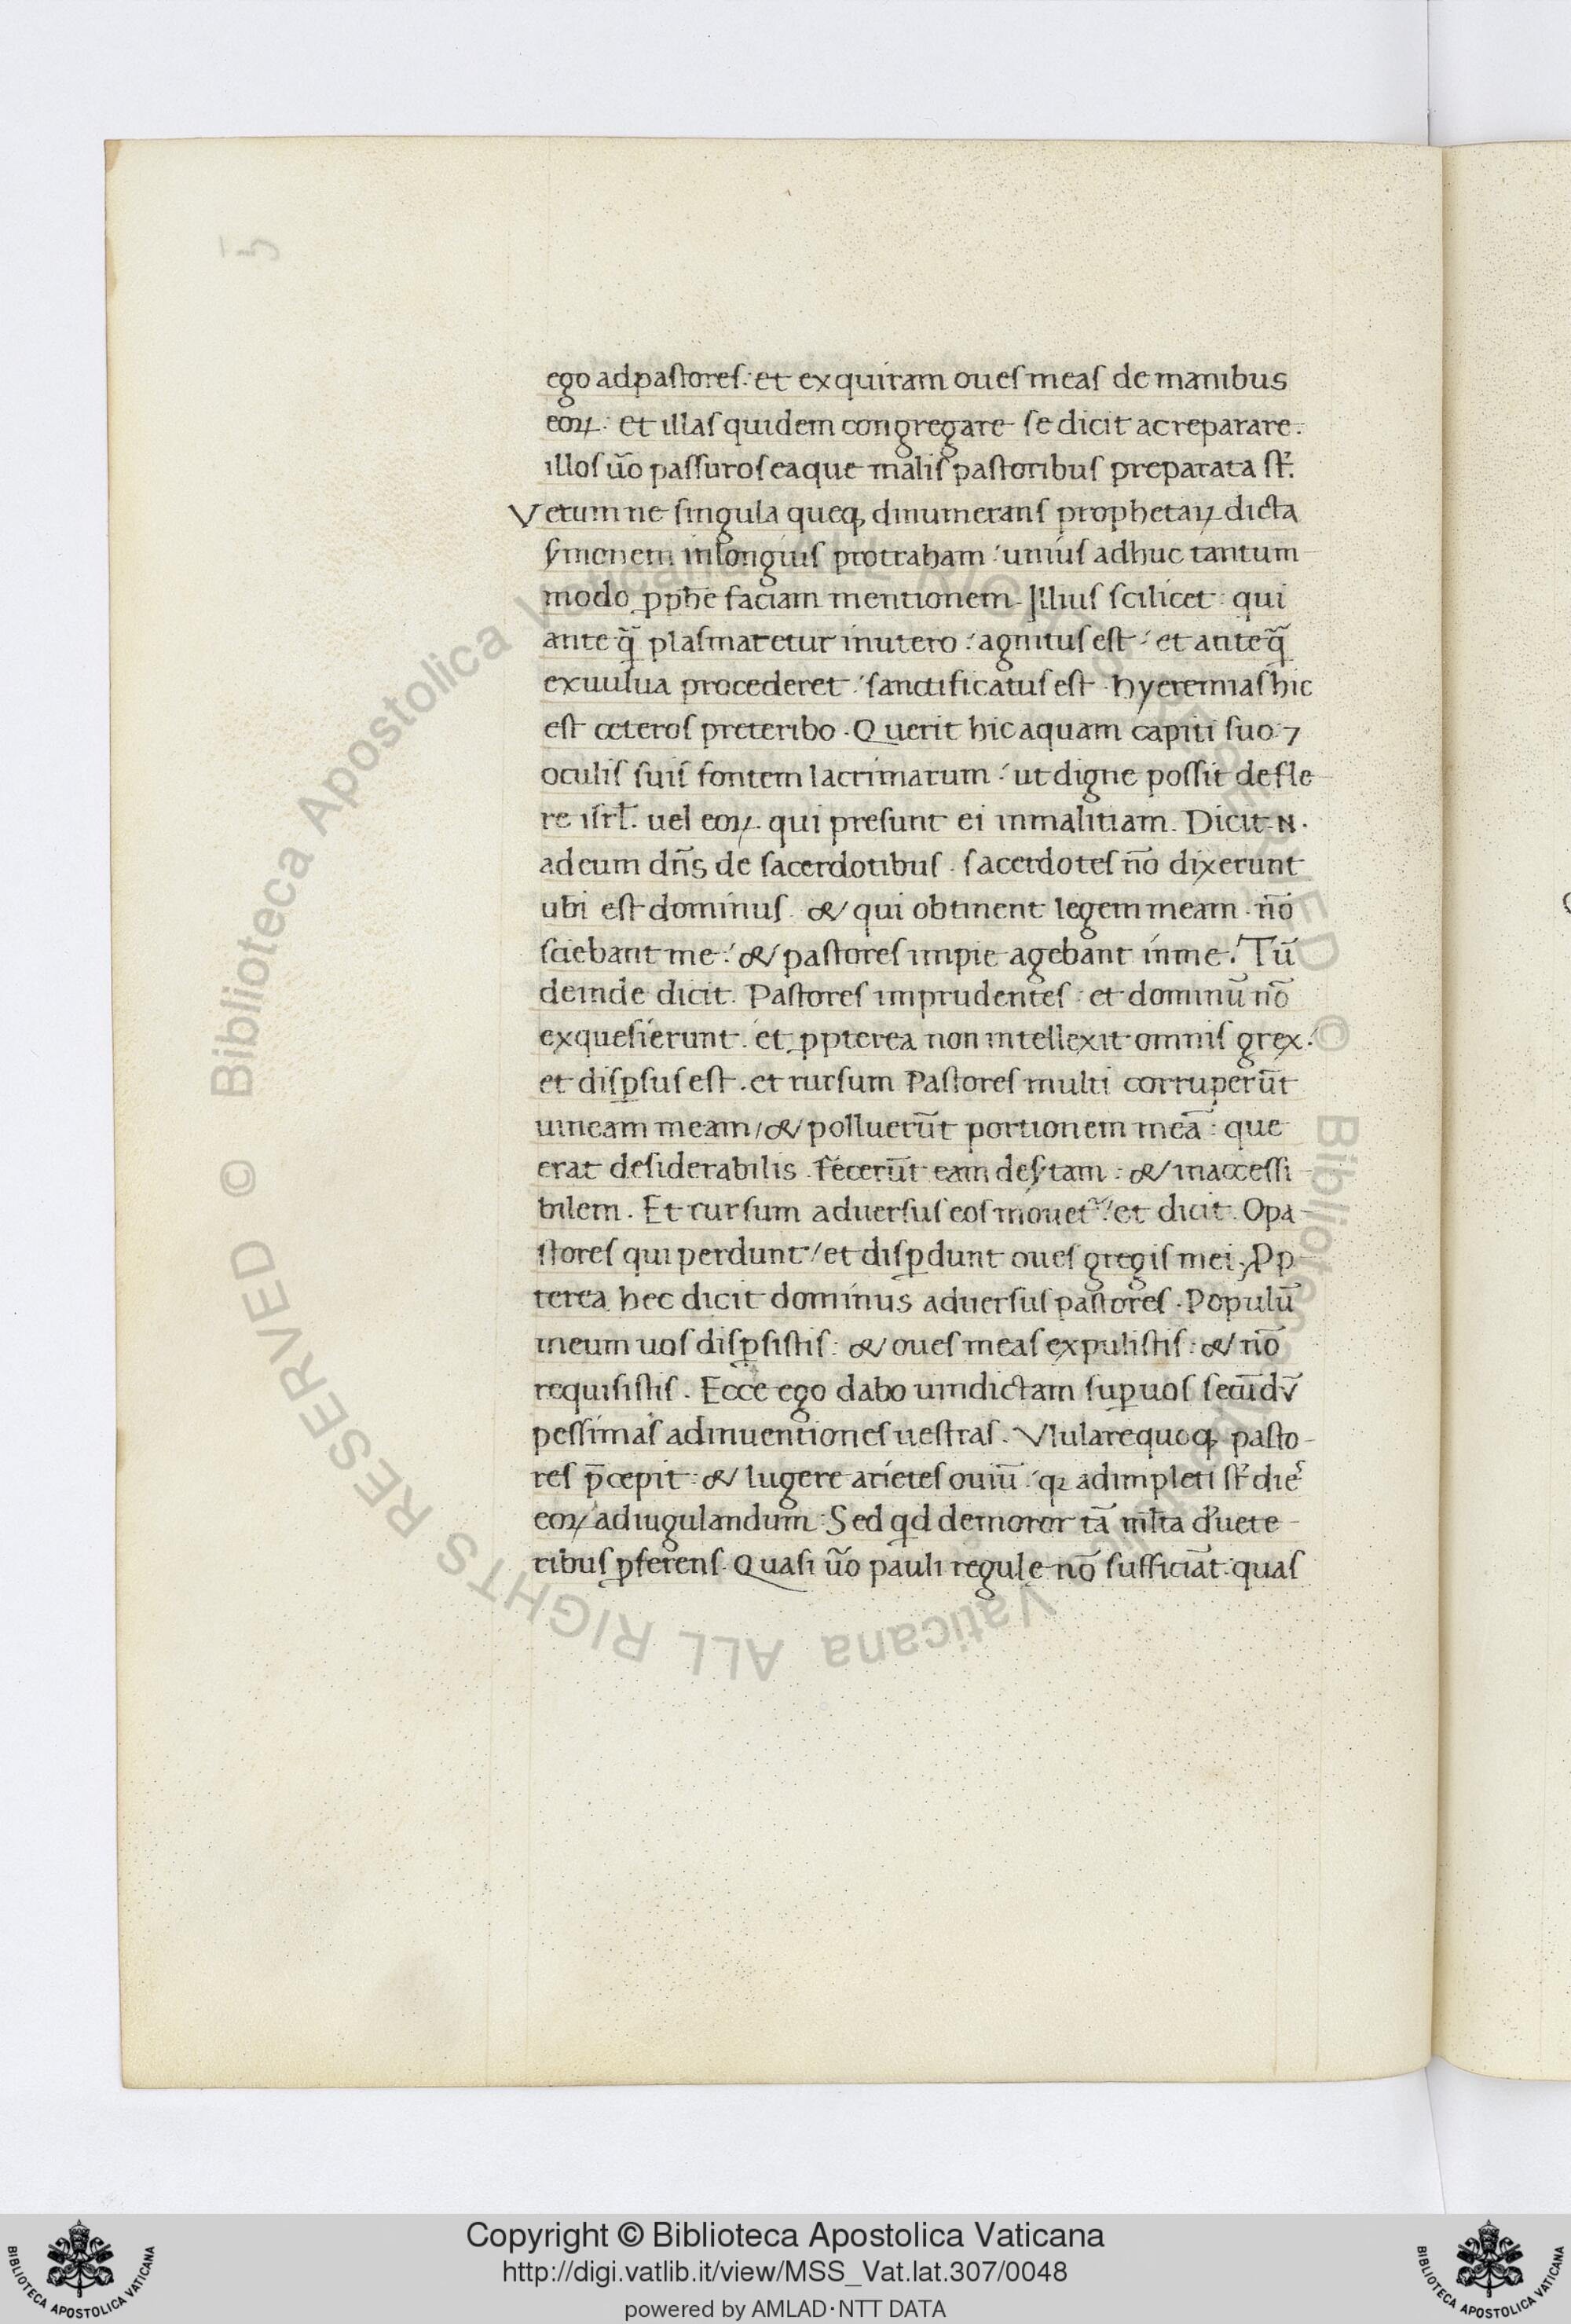 ego ad pastores: et exquiram oues meas de manibus
eoꝝ: et illas quidem congregare se dicit ac reparare.
illos ũo passuros eaque malis pastoribus preparata st̃.
Verum ne singula queq; dinumerans prophetaꝝ dicta
ẜmonem in longius protraham: unius adhuc tantum
modo ꝓphe faciam mentionem. Illius scilicet: qui
ante q̃ plasmaretur in utero: agnitus est: et ante q̃
ex uulua procederet: sanctificatus est. hyeremias hic
est ceteros preteribo. Querit hic aquam capiti suo: ⁊
oculis suis fontem lacrimarum: ut digne possit defle-
re isrl̃. uel eoꝝ. qui presunt ei in malitiam. Dicit .N.
ad eum dñs de sacerdotibus. sacerdotes nõ dixerunt
ubi est dominus. & qui obtinent legem meam. nõ
sciebant me: & pastores impie agebant in me. Tũ
deinde dicit. Pastores imprudentes: et dominũ nõ
exquesierunt. et ꝓpterea non intellexit omnis grex:
et disꝑsus est. et rursum Pastores multi corruperũt
uineam meam, & polluerũt portionem meã: que
erat desiderabilis. fecerũt eam deẜtam: & inaccessi-
bilem. Et rursum aduersus eos mouet᷑: et dicit. O pa-
stores qui perdunt, et disꝑdunt oues gregis mei. Ꝓp
terea hec dicit dominus aduersus pastores. Populũ
meum uos disꝑsistis: & oues meas expulistis: & nõ
requisistis. Ecce ego dabo uindictam suꝑ uos secũdũ
pessimas adinuentiones uestras. Vlulare quoq; pasto-
res p̃cepit: & lugere arietes ouiũ: qꝛ adimpleti st̃ dies
eoꝝ ad iugulandum. Sed qd demoror tã ml̃ta d̓ uete-
ribus ꝓferens. Quasi ũo pauli regule nõ sufficiãt: quas
Copyright © Biblioteca Apostolica Vaticana
http://digi.vatlib.it/view/MSS_Vat.lat.307/0048
powered by AMLAD·NTT DATA
BIBLIOTECA APOSTOLICA VATICANA
BIBLIOTECA APOSTOLICA VATICANA
© Biblioteca Apostolica Vaticana ALL RIGHTS RESERVED
© Biblioteca Apostolica Vaticana ALL RIGHTS RESERVED